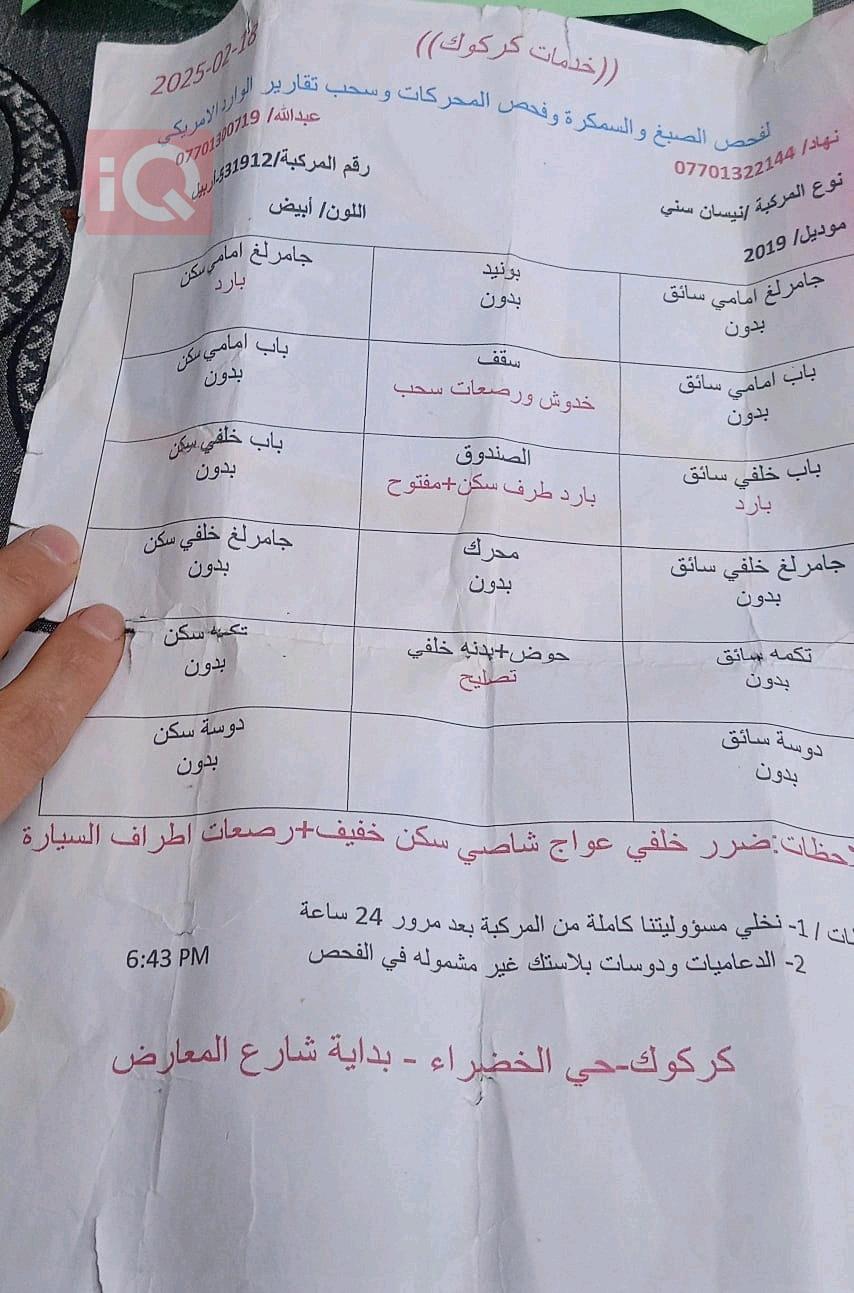 ((خدمات كركوك))
2025-02-18
لفحص الصبغ والسمكرة وفحص المحركات وسحب تقارير الوارد الامريكي
نهاد/ 07701322144
عبدالله/
نوع المركبة /نيسان سني
رقم المركبة/
موديل/ 2019
اللون/ أبيض
iQ
جامرلغ امامي سائق
بدون
بونيد
بدون
جامرلغ امامي سكن
بارد
باب امامي سائق
بدون
سقف
خدوش ورصعات سحب
باب امامي سكن
بدون
باب خلفي سائق
بارد
الصندوق
بارد طرف سكن+مفتوح
باب خلفي سكن
بدون
جامرلغ خلفي سائق
بدون
محرك
بدون
جامرلغ خلفي سكن
بدون
تكمه سائق
بدون
حوض+بدنه خلفي
تصليح
تكمه سكن
بدون
دوسة سائق
بدون
دوسة سكن
بدون
حظات:ضرر خلفي عواج شاصي سكن خفيف+رصعات اطراف السيارة
ات / 1- نخلي مسؤوليتنا كاملة من المركبة بعد مرور 24 ساعة
2- الدعاميات ودوسات بلاستك غير مشموله في الفحص
6:43 PM
كركوك-حي الخضراء - بداية شارع المعارض